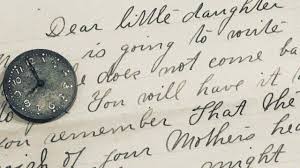 Dear little daughter
is going to write
does not come ba
You will have it
you remember That The
of your Mothers hea
might